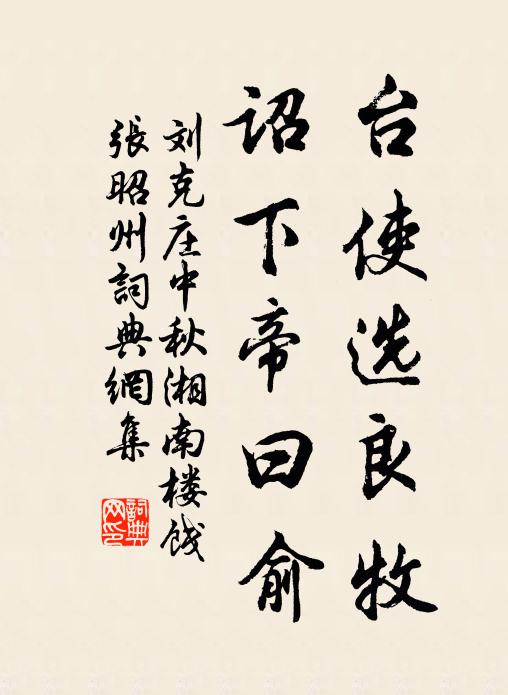 台使选良牧
诏下帝曰俞
刘克庄中秋湘南楼饯
張昭州詞典網集
詞典
网印